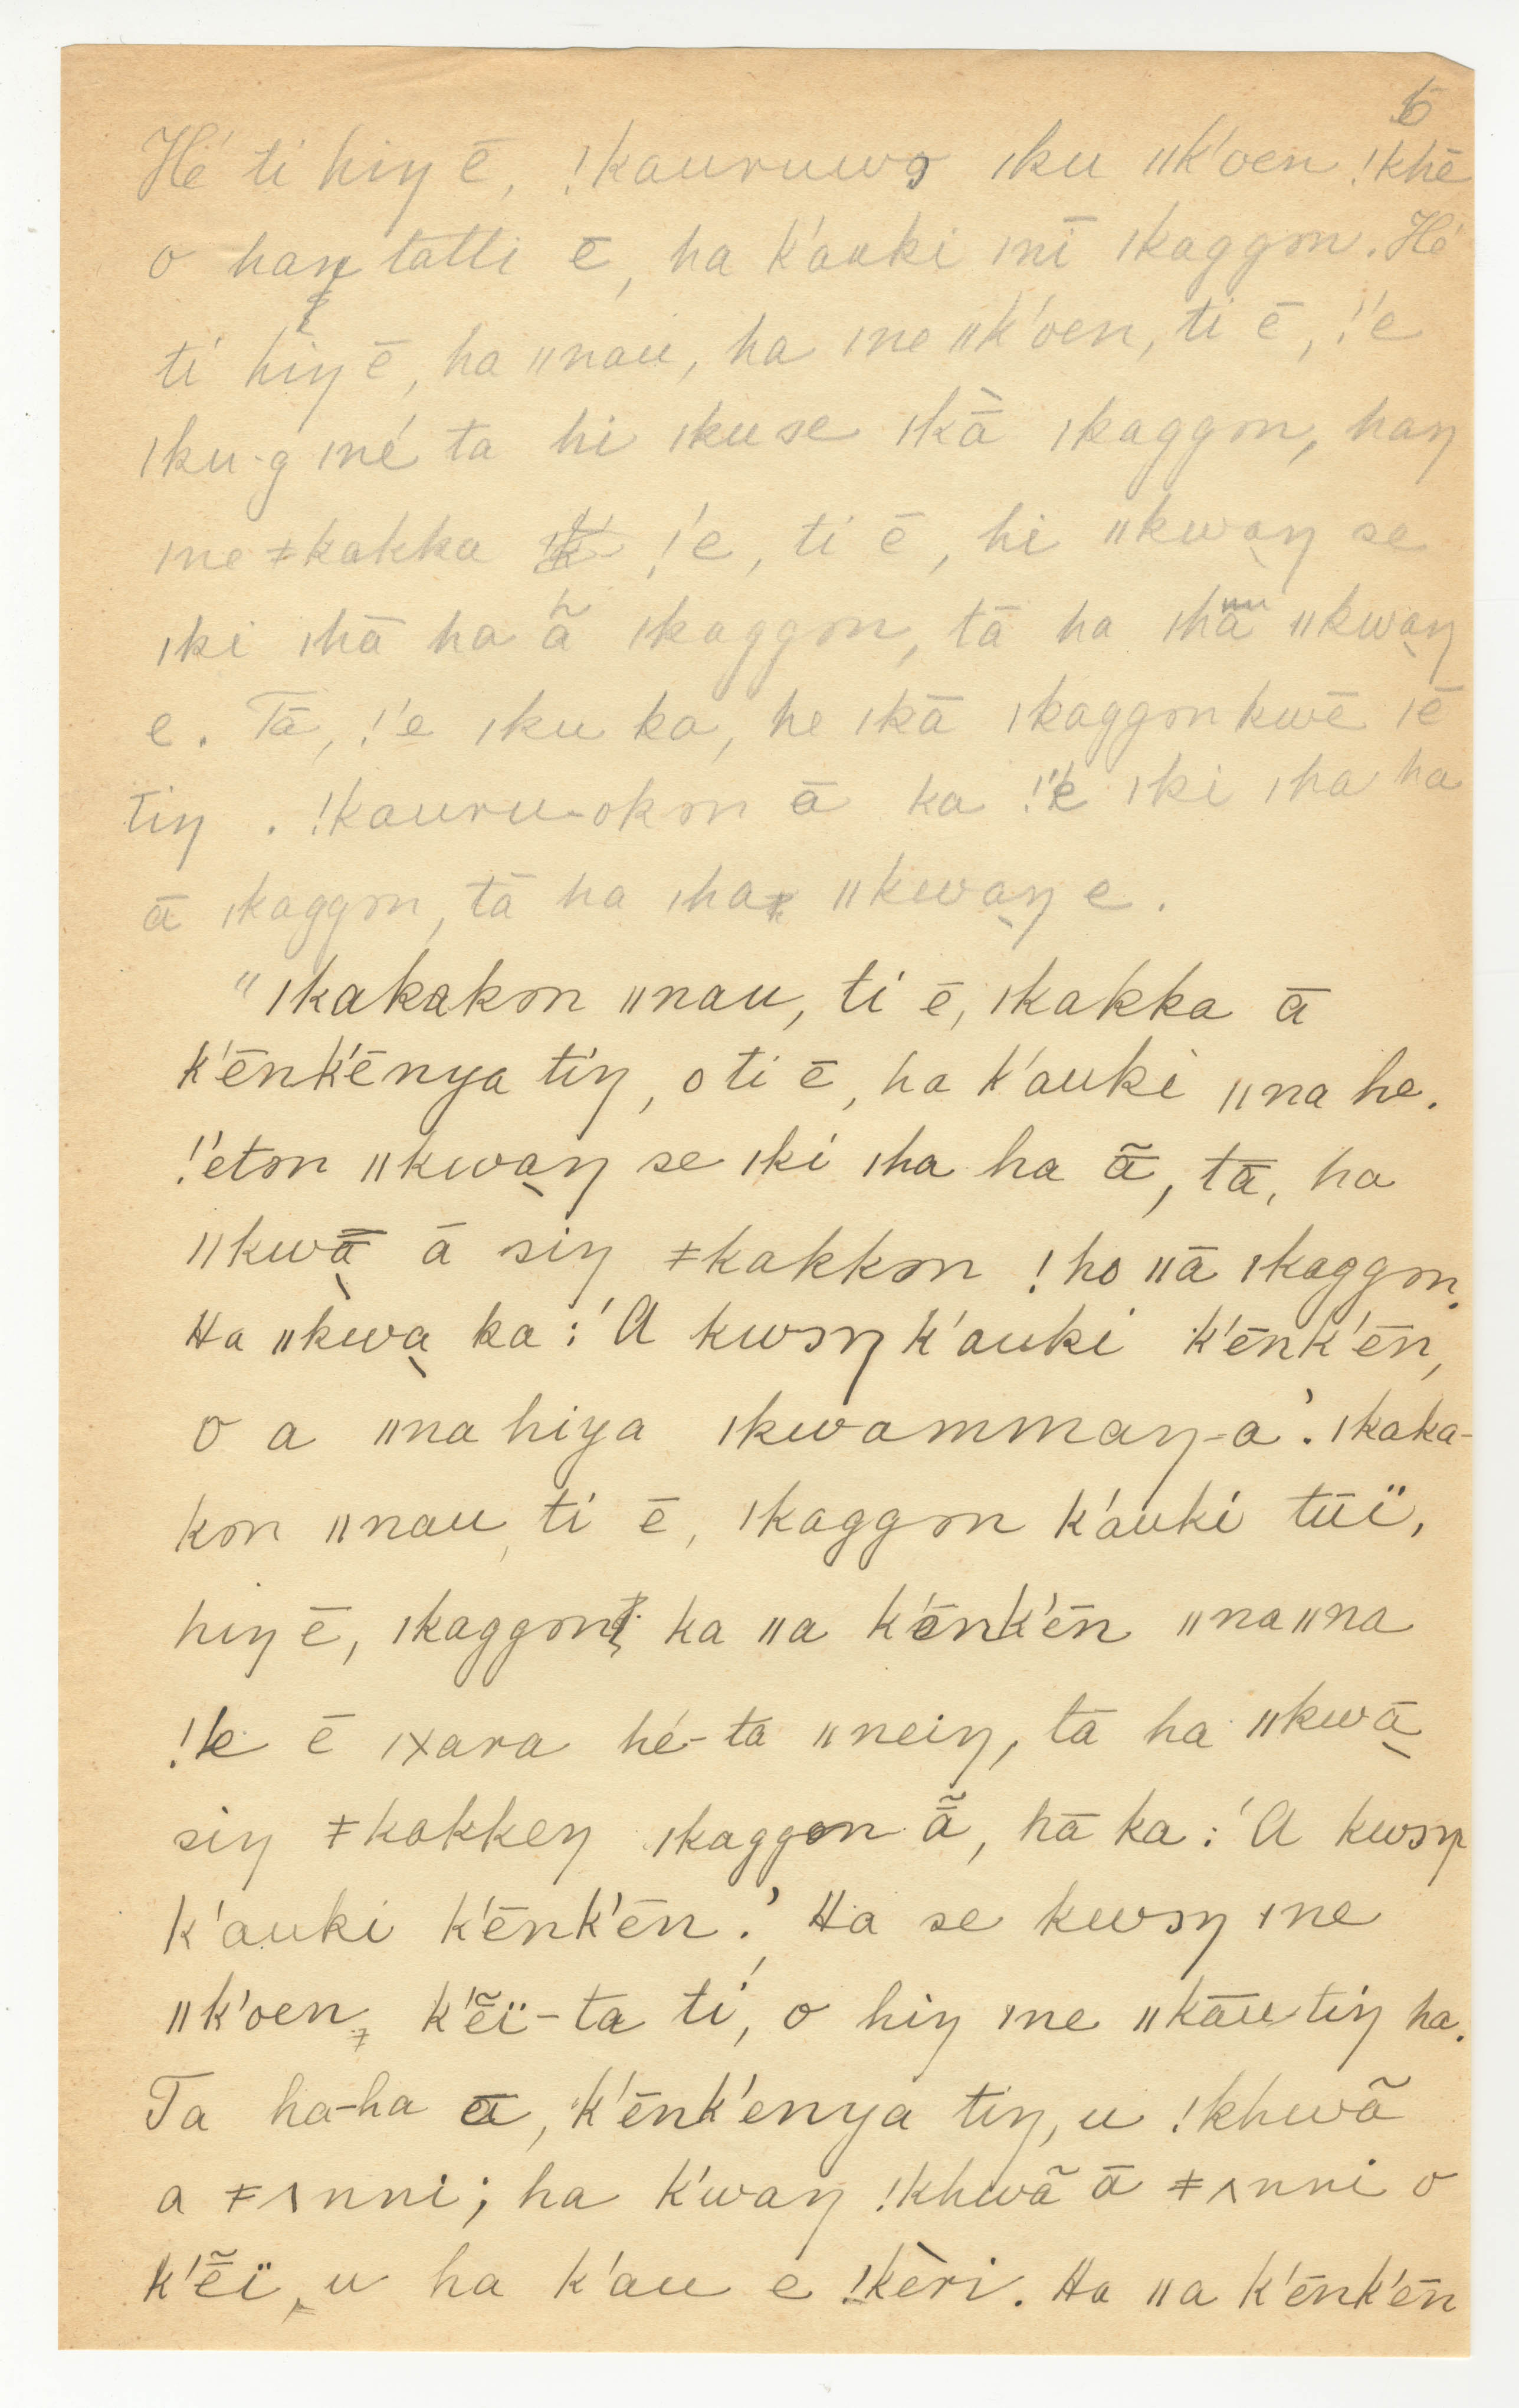 6
Hé ti hiŋ ē, !kauruwɔ ıku ıık'oen !khē
o haŋ tatti ē, ha k'auki ınī ıkaggən. Hé
ti hiŋ ē, ha ıınau, ha ıne ıık'oen, ti ē, !'e
ıku-g ıné ta hi ıkuse ıkā̀ ıkaggən, haŋ
ıne ǂkakka !'e, ti ē, hi ııkwa̱ŋ se
ıki ıhā ha ã̄ ıkaggən, tā ha ıhā ııkwa̱ŋ
e. Tā, !'e ıku ka, he ıkā ıkaggən kwē ıē
tiŋ. !kauru-okən ā ka !'e ıki ıha ha
ā ıkaggən, tā ha ıha ııkwa̱ŋ e.
"ıkakakən ıınau, ti ē, ıkakka ā
k'ēnk'ēnya tiŋ, o ti ē, ha k'auki ıına he.
!'etən ııkwa̱ŋ se ıki ıha ha ã̄, tā, ha
ııkwā̱ ā siŋ ǂkakkən !ho ııā ıkaggən.
Ha ııkwa̱ ka: 'A kwɔŋ k'auki k'ēnk'ēn,
o a ıına hiya ıkwammaŋ-a'. ıkaka-
kən ıınau, ti ē, ıkaggən k'auki tūï,
hiŋ ē, ıkaggən ka ııa k'ēnk'ēn ıınaıına
!'e ē ıxara hé-ta ııneiŋ, tā ha ııkwā̱
siŋ ǂkakkeŋ ıkaggən ã̄, hā ka: 'A kwɔŋ
k'auki k'ēnk'ēn.' Ha se kwɔŋ ıne
ıık'oen, k'ẽ̄ï-ta ti, o hiŋ ıne ııkāu tiŋ ha.
Ta ha-ha ā, k'ēnk'enya tiŋ, u !khwã
a ǂʌnni; ha k'waŋ !khwã ā ǂʌnni o
k'ẽ̄ï, u ha k'au e !kèri. Ha ııa k'ēnk'ēn